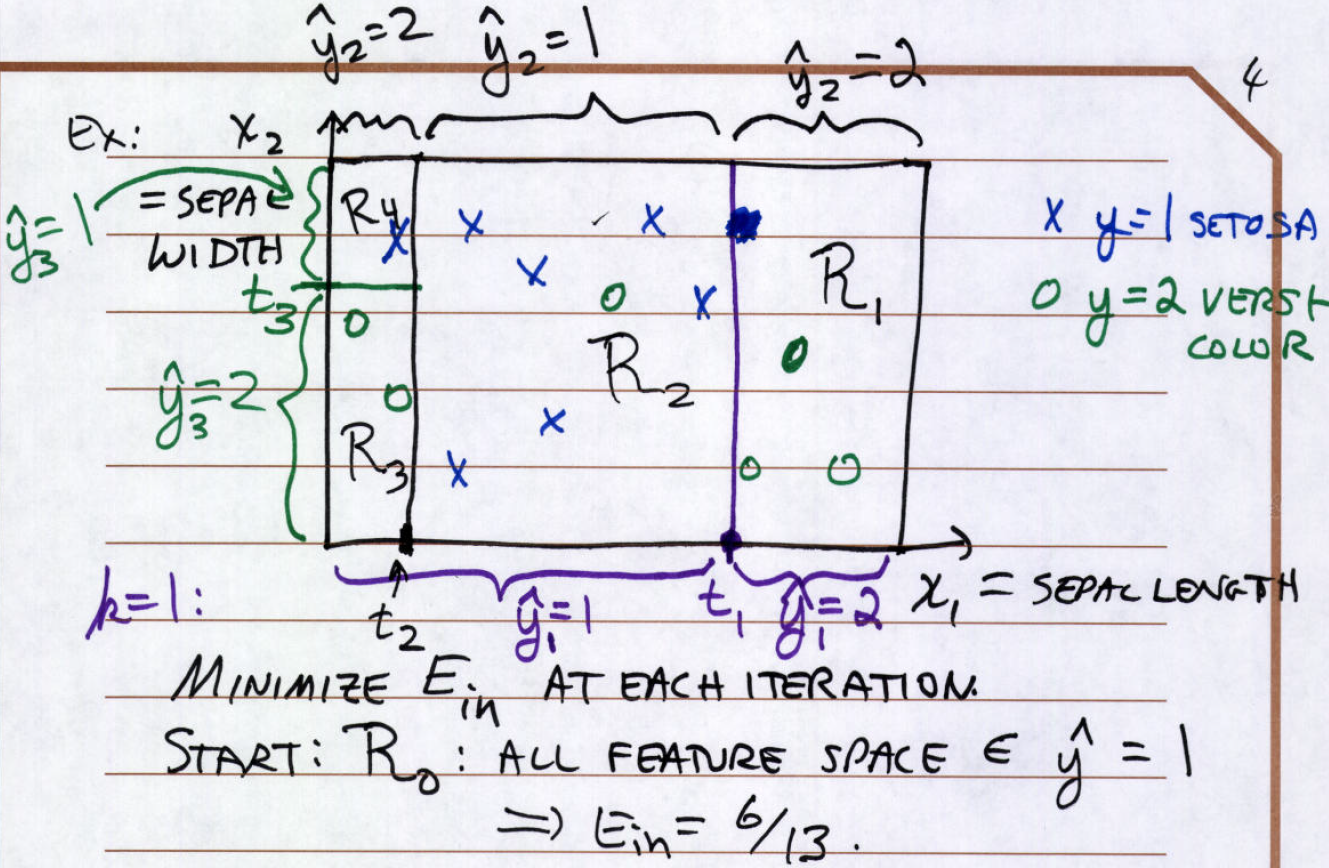 ŷ₂=2 ŷ₂=1 ŷ₂=2
4
Ex: x₂
ŷ₃=1 =SEPAL WIDTH R₄ R₁ x y=1 SETOSA
t₃ o y=2 VERSI-
COLOR
ŷ₃=2 R₂
R₃
k=1: t₂ ŷ₁=1 t₁ ŷ₁=2 x₁ = SEPAL LENGTH
MINIMIZE Eᵢₙ AT EACH ITERATION.
START: R₀: ALL FEATURE SPACE ∈ ŷ = 1
⇒ Eᵢₙ = 6/13.